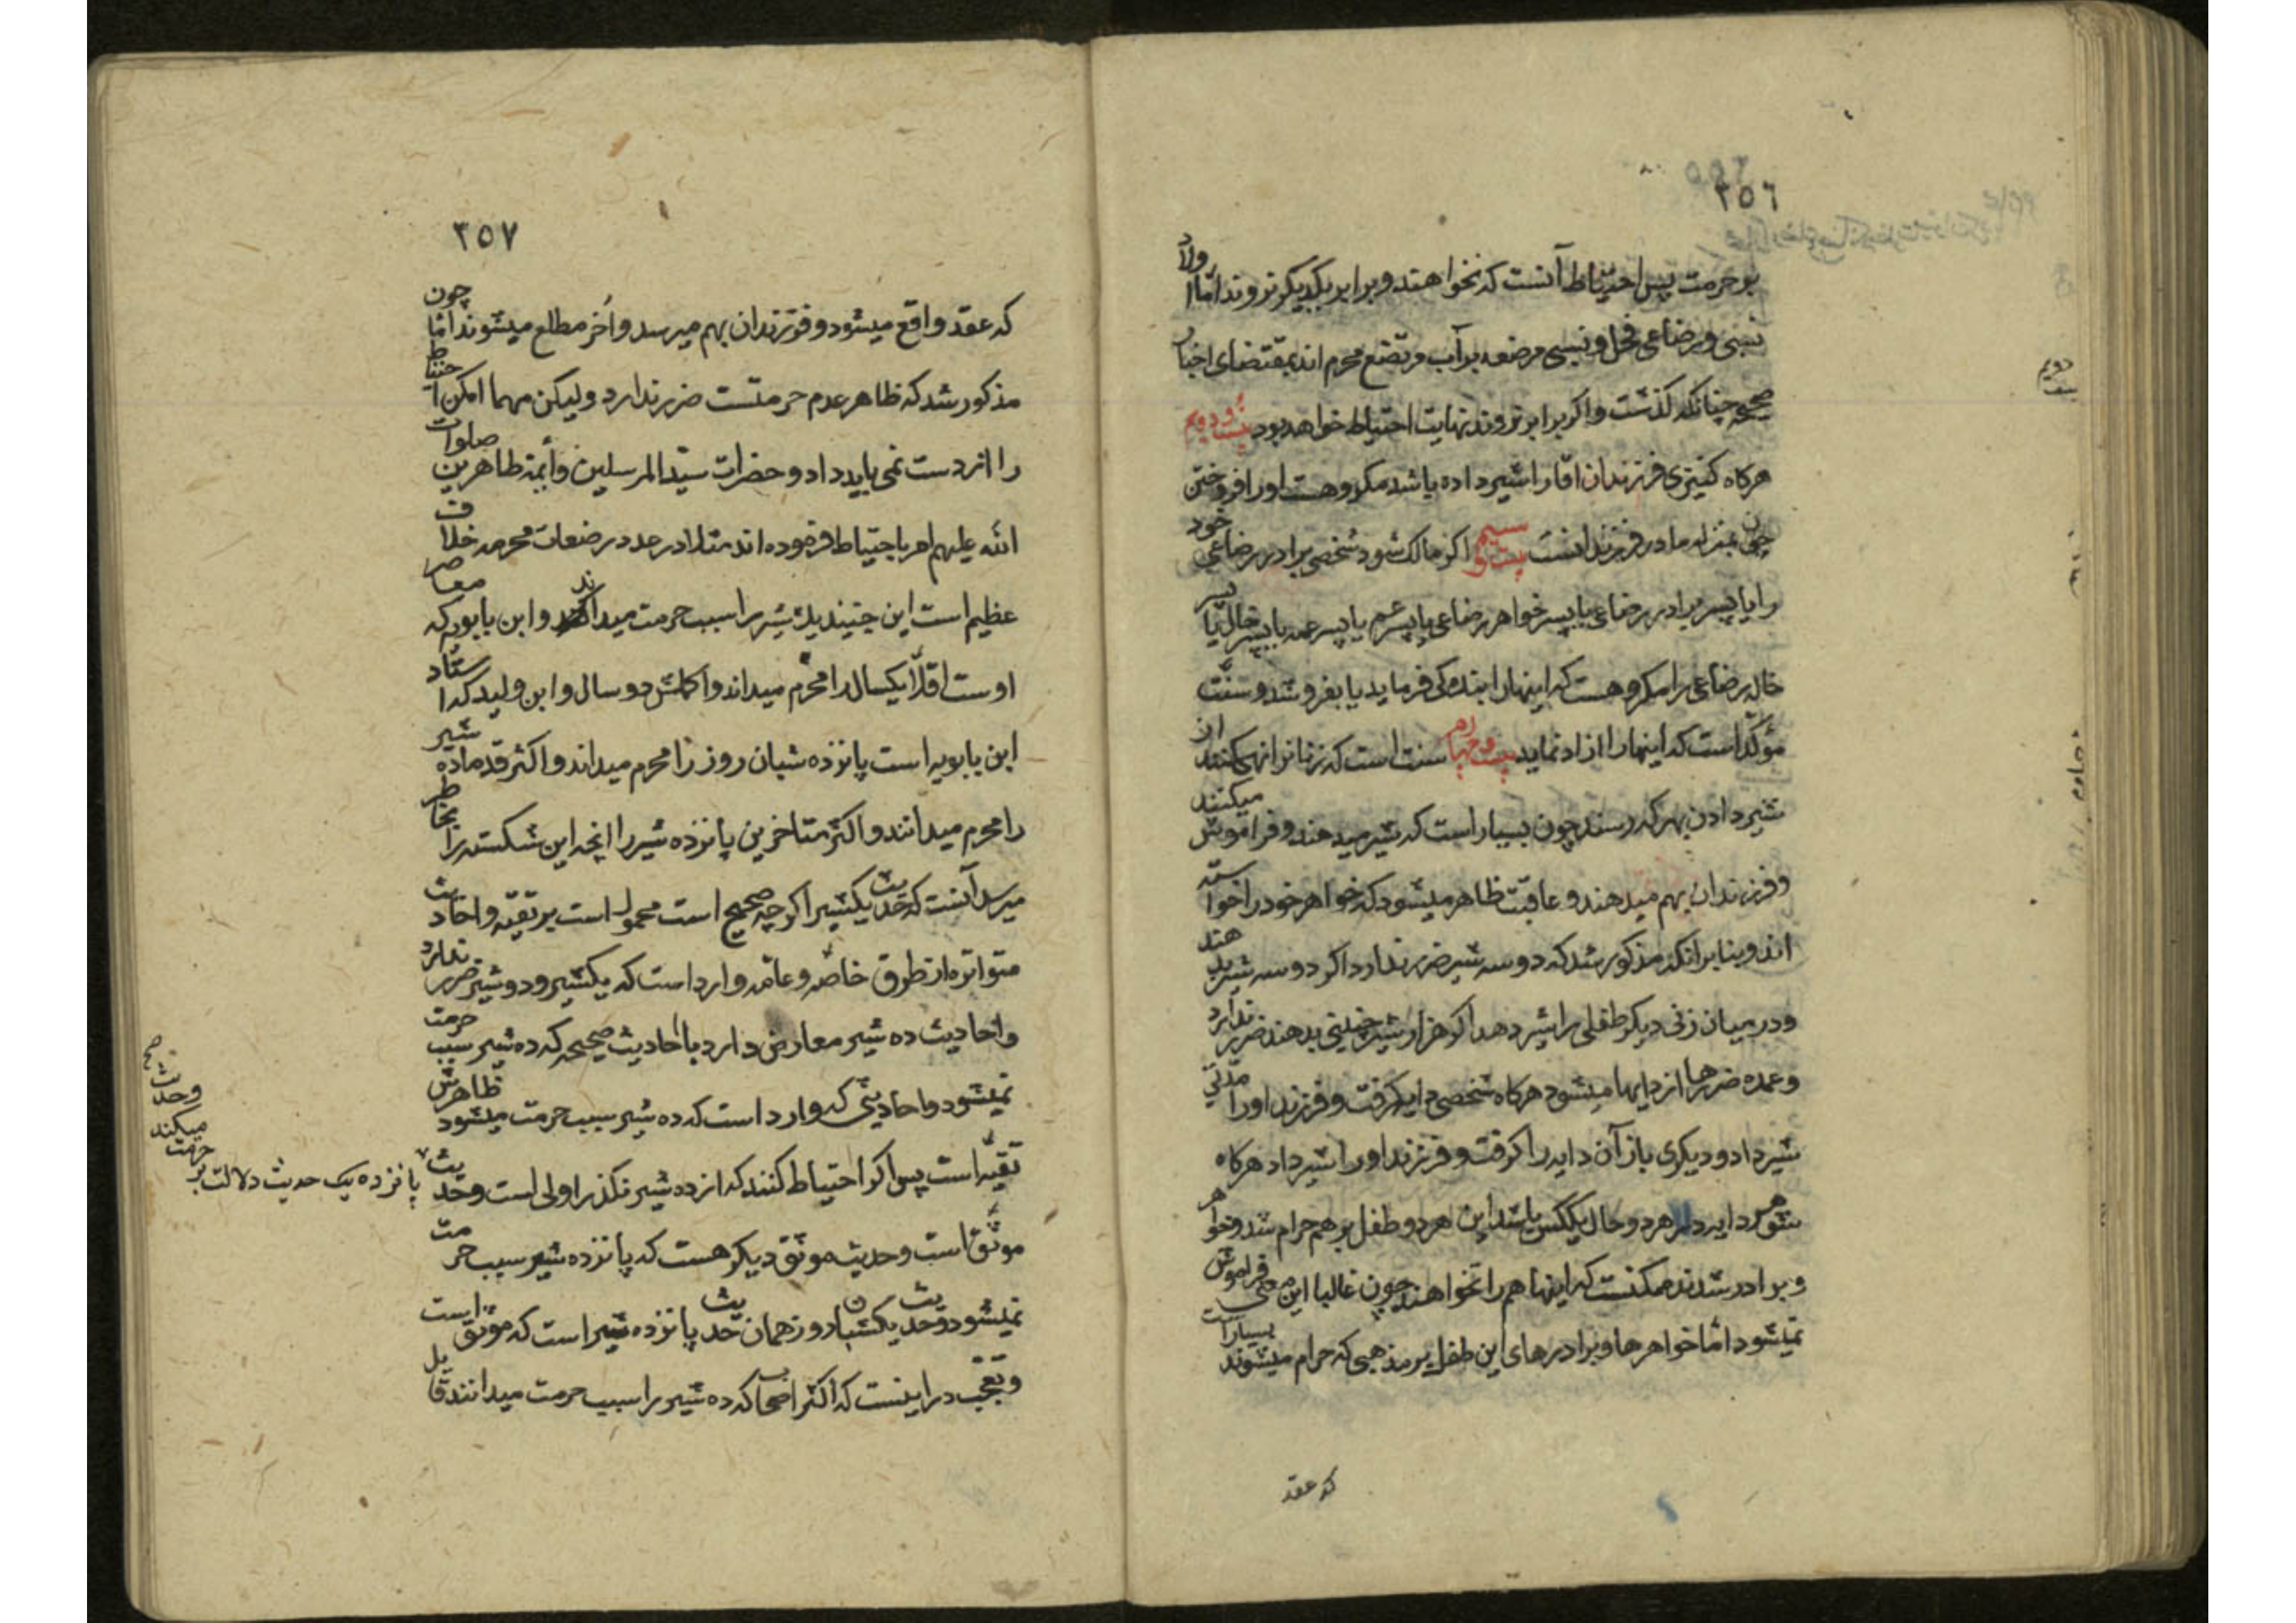 ٣٥٦
بر حرمت پس احتیاط آنست که نخواهند و برابر یکدیگر نروند اما اولاد
نسبی و رضاعی فحل و نسبی مرضعه بر آب مرتضع محرم اند بمقتضای اخبار
صحیحه چنانکه گذشت و اگر برابر نروند نهایت احتیاط خواهد بود بیست و دویم
هرگاه کنیزی فرزندان اقا را شیر داده باشد مکروهست او را فروختن
چون بمنزله مادر فرزندانست بیست و سیم اگر مالک شود شخصی برادر رضاعی خود
را یا پسر برادر رضاعی یا پسر خواهر رضاعی یا پسر عم یا پسر عمه یا پسر خال یا پسر
خاله رضاعی را مکروهست که اینها را بنده کی فرماید یا بفروشد و سنّت
مؤکّد است که اینها را ازاد نماید بیست و چهارم سنت است که زنان را نهی کنند از
شیر دادن بهر که رسند چون بسیار است که شیر میدهند و فراموش میکنند
و فرزندان بهم میدهند و عاقبت ظاهر میشود که خواهر خود را خواسته
اند و بنا بر انکه مذکور شد که دو سه شیر ضرر ندارد اگر دو سه شیر بدهند
و در میان زنی دیگر طفلی را شیر دهد اگر هزار شیر چنینی بدهند ضرر ندارد
و عمده ضررها از دایها میشود هرگاه شخصی دایه گرفت و فرزند او را مدّتی
شیر داد و دیگری باز آن دایه را گرفت و فرزند او را شیر داد هرگاه
شوهر دایه در هر دو حال یککس باشد این هر دو طفل بر هم حرام شد و خواهر
و برادر شدند ممکنست که اینها هم را نخواهند چون غالبا این معنی فراموش
نمیشود امّا خواهرها و برادرهای این طفل بر مذهبی که حرام میشوند بسیار است
که عقد
٣٥٧
که عقد واقع میشود و فرزندان بهم میرسد و آخر مطلع میشوند امّا چون
مذکور شد که ظاهر عدم حرمتست ضرر ندارد ولیکن مهما امکن احتیاط
را از دست نمی باید داد و حضرات سیّد المرسلین و أئمّه طاهرین صلوات
اللّه علیهم امر باحتیاط فرموده اند مثلا در عدد رضعات محرمه خلاف
عظیم است این جنید یک شیر را سبب حرمت میداند و ابن بابویه که معاصر
اوست اقلّا یکسال را محرّم میداند و اکملش دو سال و ابن ولید که استاد
ابن بابویه است پانزده شبان روز را محرم میداند و اکثر قدما ده شیر
را محرم میدانند و اکثر متاخرین پانزده شیر را انچه این شکسته را بخاطر
میرسد آنست که حدیث یکشیر اگرچه صحیح است محمول است بر تقیّه و احادیث
متواتره از طرق خاصّه و عامّه وارد است که یکشیر و دو شیر ضرر ندارد
و احادیث ده شیر معارض دارد با احادیث صحیحه که ده شیر سبب حرمت
نمیشود و احادیثی که وارد است که ده شیر سبب حرمت میشود ظاهرش
تقیّه است پس اگر احتیاط کنند که از ده شیر نگذرد اولی است و حدیث
پانزده یک حدیث دلالت بر حرمت میکند و حدیث صحیح
موثّق است و حدیث موثق دیگر هست که پانزده شیر سبب حرمت
نمیشود و حدیث یکشبان روز همان حدیث پانزده شیر است که موثق است
و تعجّب در اینست که اکثر اصحاب که ده شیر را سبب حرمت میدانند قایل